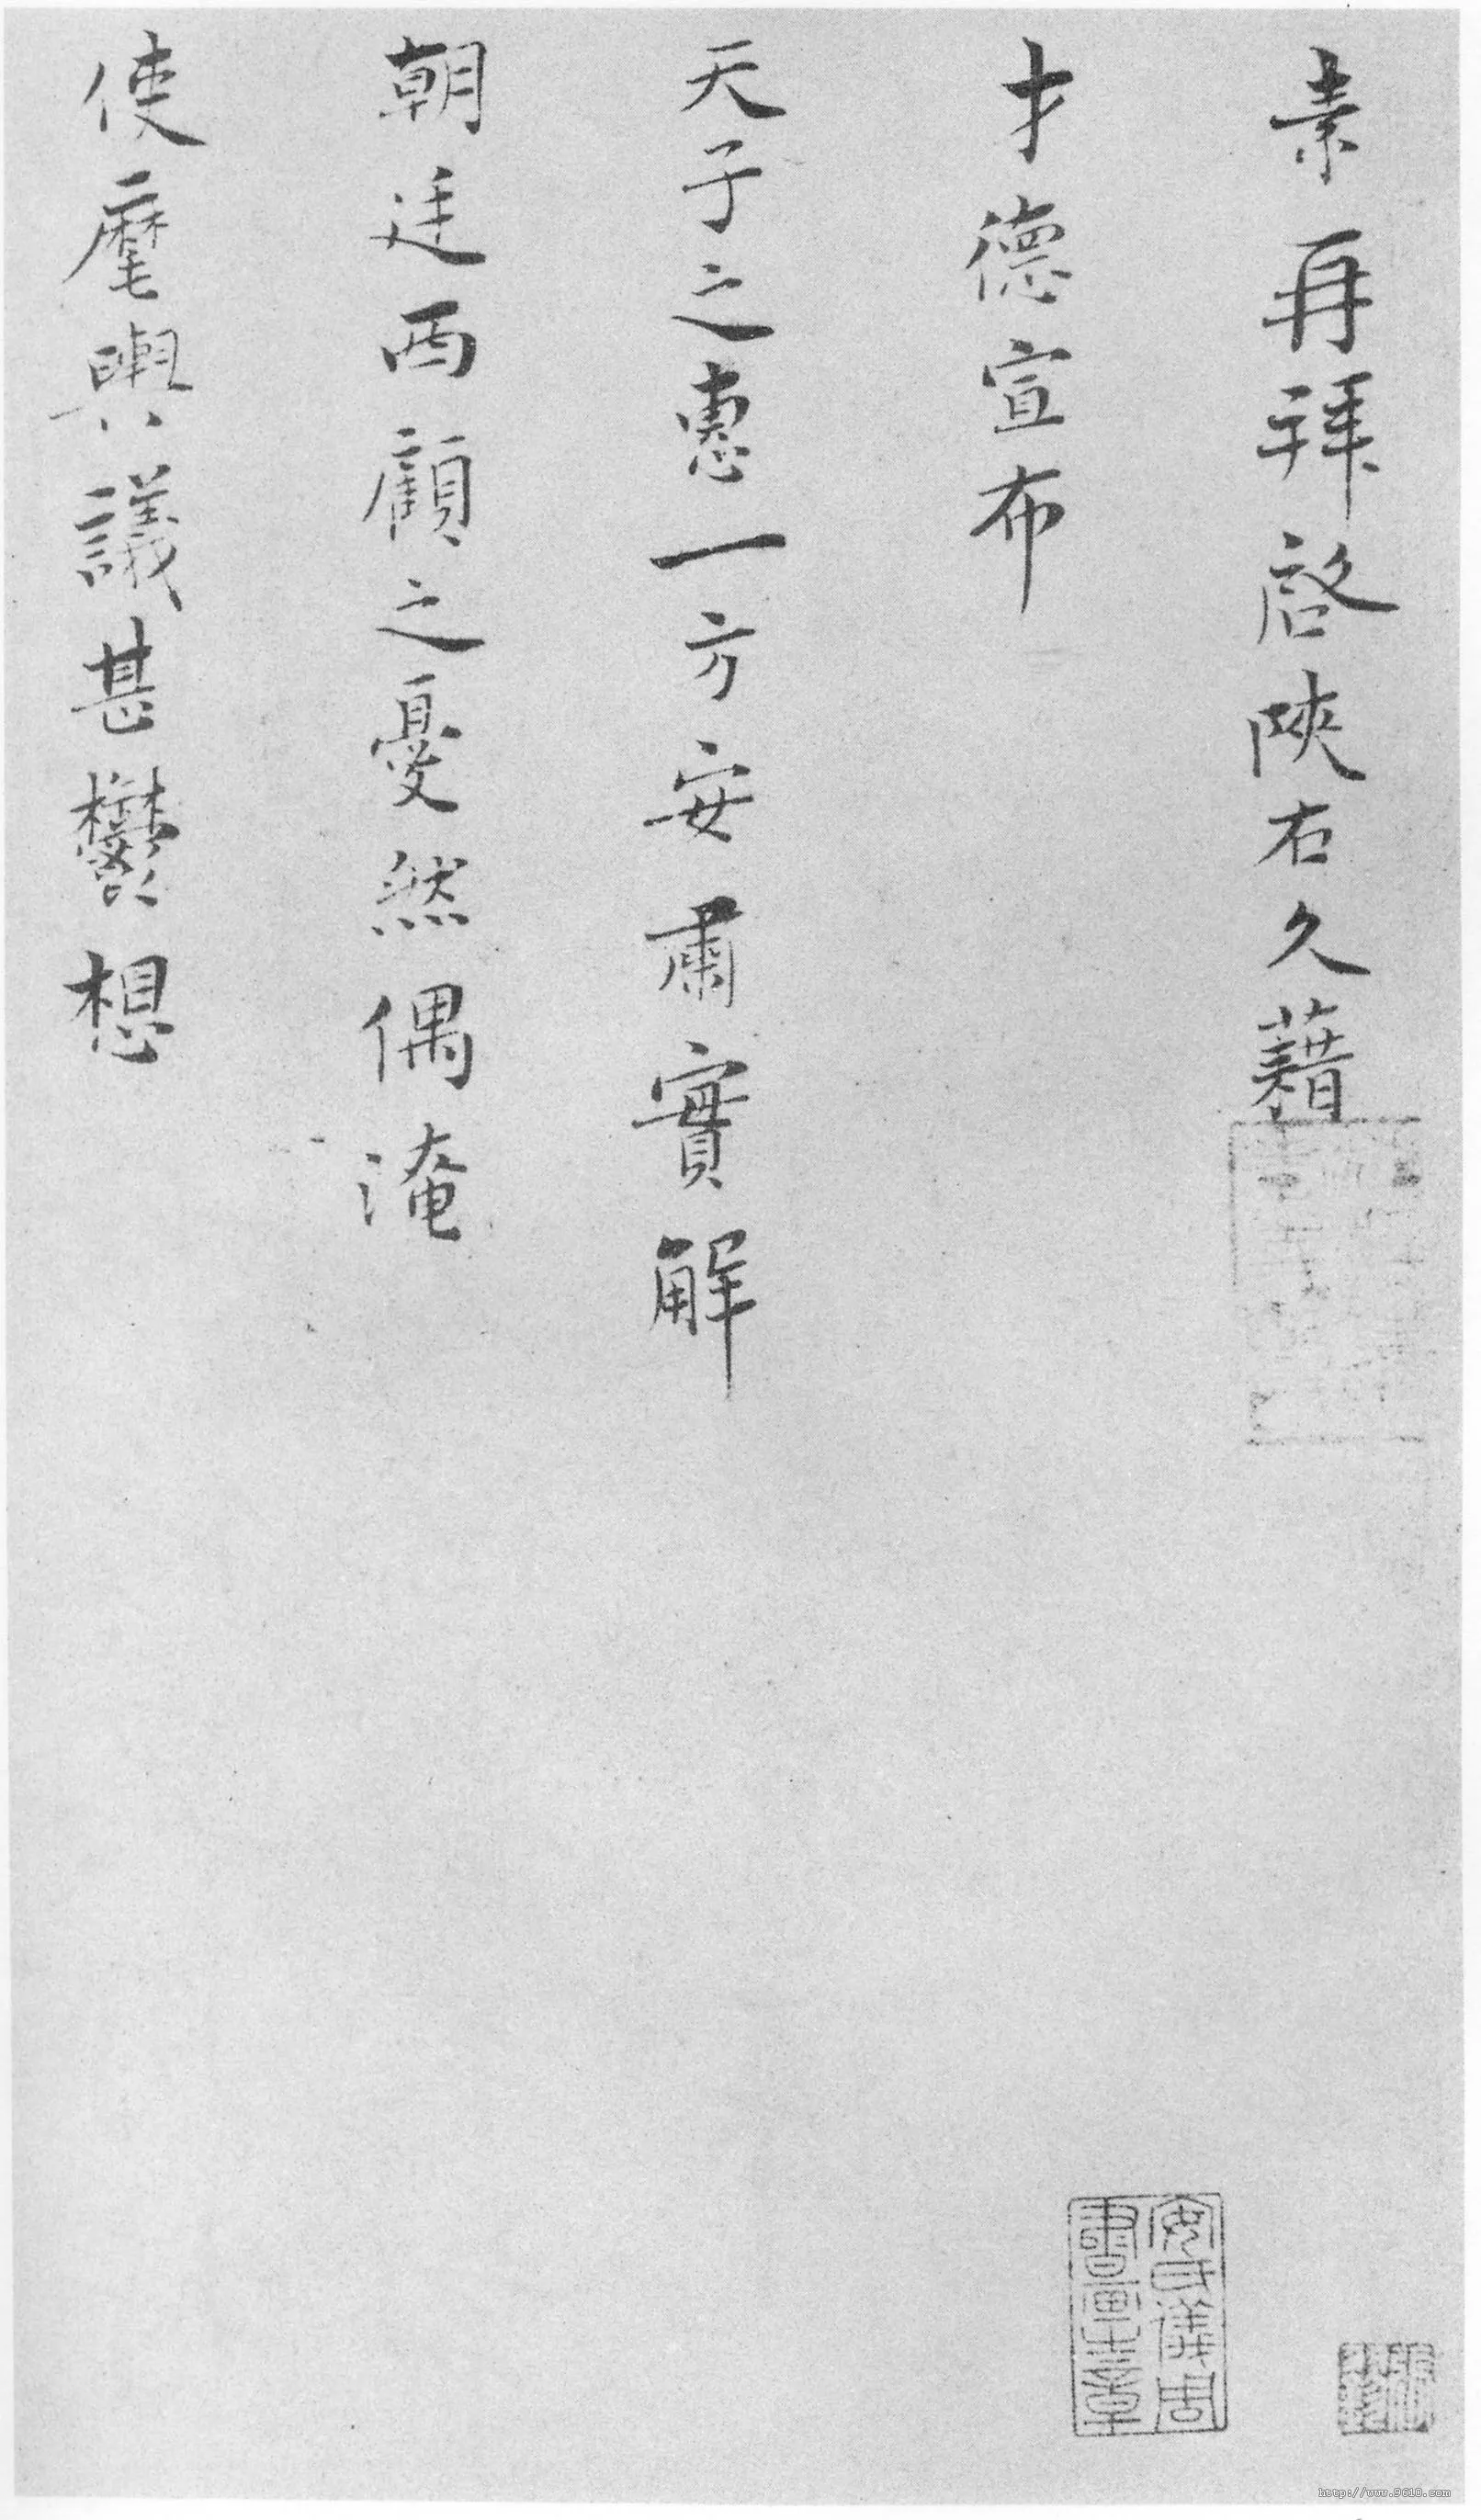 素再拜啓陝右久藉
才德宣布
天子之惠一方安肅實解
朝廷西顧之憂然偶淹
使麾輿議甚鬱想
安氏儀周
書畫之章
http://www.9610.com